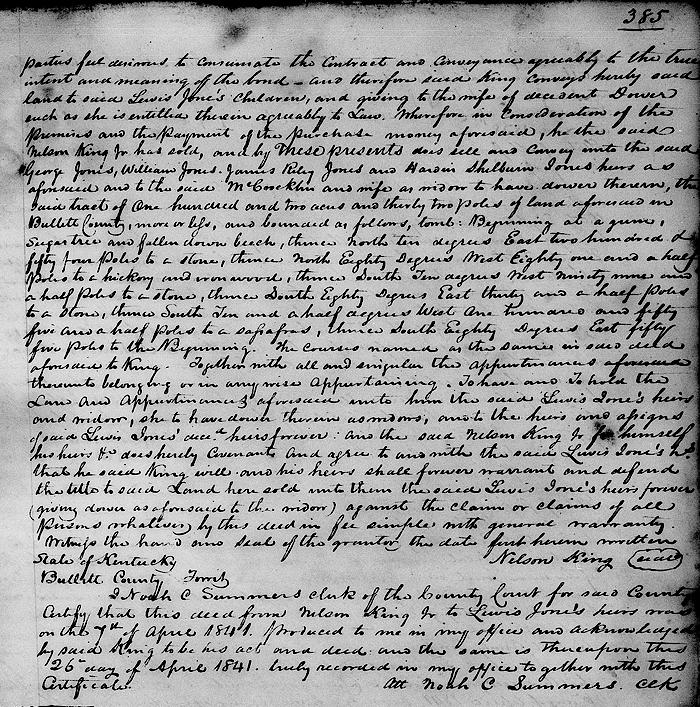 385
parties feel desirous to consumate the Contract and Conveyance agreeably to the true
intent and meaning of the bond - and therefore said King Conveys hereby said
land to said Lewis Jone's Children, and giving to the wife of decedent Dower
such as she is entitled therein agreeably to Law. Wherefore in Consideration of the
Premises and the Payment of the Purchase money aforesaid, he the said
Nelson King Jr has sold, and by These presents does sell and Convey unto the said
George Jones, William Jones. James Riley Jones and Hardin Shelburn Jones heirs as
aforesaid and to the said McCocklin and wife as widow to have dower therein, the
said tract of One hundred and two acres and thirty two poles of land aforesaid in
Bullitt County, more or less, and bounded as follows, towit: Beginning at a gum,
Sugartree and fallen down beech, thence North ten degrees East two hundred &
fifty four Poles to a stone, thence North Eighty Degrees West Eighty one and a half
Poles to a hickory and ironwood, thence South Ten degrees West Ninety nine and
a half Poles to a stone, thence South Eighty Degrees East thirty and a half Poles
to a stone, thence South Ten and a half degrees West One hundred and fifty
five and a half poles to a sassafras, thence South Eighty Degrees East fifty
five Poles to the Beginning. The courses named as the same in said deed
aforesaid to King. Together with all and singular the appurtinances aforesaid
thereunto belonging or in any wise Appurtaining. To have and To hold the
Land and Appurtinances aforesaid unto him the said Lewis Jone's heirs
and widow, she to have dower therein as widow, and to the heirs and assigns
of said Lewis Jones' decd. heirs forever. and the said Nelson King Jr for himself
his heirs &c does hereby Covenant and agree to and with the said Lewis Jone's hrs
that he said King will and his heirs shall forever warrant and defend
the title to said Land here sold unto them the said Lewis Jone's heirs forever
(giving dower as aforesaid to the widow) against the claim or claims of all
Persons whatever, by this deed in fee simple with general warranty
Witness the hand and seal of the grantor, the date first herein written
State of Kentucky Nelson King (seal)
Bullitt County Towit
I Noah C Summers clerk of the County Court for said County
Certify that this deed from Nelson King Jr to Lewis Jone's heirs was
on the 7th of April 1841. Produced to me in my office and acknowledged
by said King to be his act and deed and the same is thereupon this
26th day of April 1841. truly recorded in my office together with this
Certificate. Att Noah C Summers. Clk